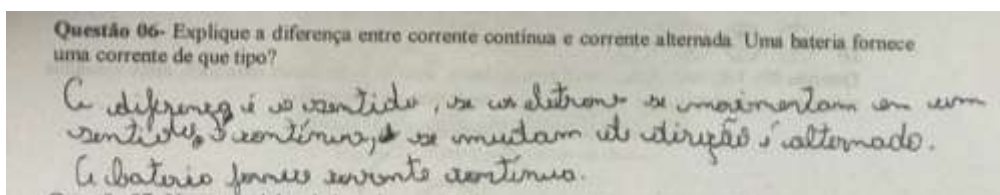 Questão 06- Explique a diferença entre corrente contínua e corrente alternada. Uma bateria fornece
uma corrente de que tipo?
A diferença é o sentido, se os eletrons se movimentam em um
sentido, é contínuo, se mudam de direção é alternado.
A bateria fornece corrente contínua.